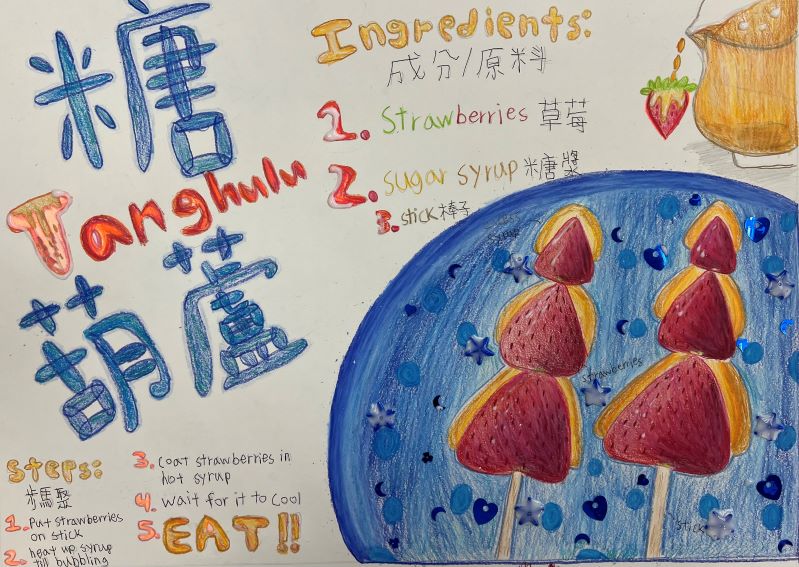 糖
Tanghulu
葫蘆
Ingredients:
成分/原料
1. Strawberries 草莓
2. Sugar syrup 糖漿
3. stick 棒子
syrup
strawberries
stick
Steps:
1. Put strawberries
on stick
2. heat up syrup
till bubbling
3. Coat strawberries in
hot syrup
4. wait for it to cool
5. EAT!!